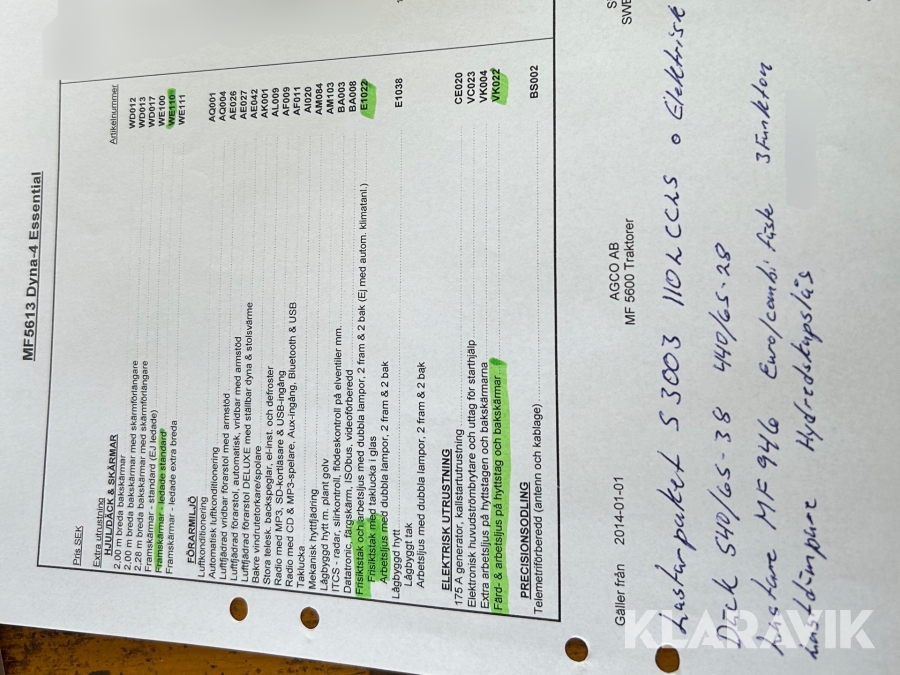 MF5613 Dyna-4 Essential
Pris SEK
Artikelnummer
Extra utrustning
HJUL/DÄCK & SKÄRMAR
2.00 m breda bakskärmar WD012
2.00 m breda bakskärmar med skärmförlängare WD013
2.28 m breda bakskärmar med skärmförlängare WD017
Framskärmar - standard (EJ ledade) WE100
Framskärmar - ledade standard WE110
Framskärmar - ledade extra breda WE111
FÖRARMILJÖ
Luftkonditionering AQ001
Automatisk luftkonditionering AQ004
Luftfjädrad vridbar förarstol med armstöd AE026
Luftfjädrad förarstol, automatisk, vridbar med armstöd AE027
Luftfjädrad förarstol DELUXE med ställbar dyna & stolsvärme AE042
Bakre vindrutetorkare/spolare AK001
Stora telesk. backspeglar, el-inst. och defroster AL009
Radio med MP3, SD-kortläsare & USB-ingång AF009
Radio med CD & MP3-spelare, Aux-ingång, Bluetooth & USB AF011
Taklucka AI020
Mekanisk hyttfjädring AM084
Lågbyggd hytt m. plant golv AM103
ITCS - radar, slirkontroll, flödeskontroll på elventiler mm. BA003
Datatronic, färgskärm, ISObus, videoförberedd BA008
Frisiktstak och arbetsljus med dubbla lampor, 2 fram & 2 bak (Ej med autom. klimatanl.) E1022
Frisiktstak med taklucka i glas
Arbetsljus med dubbla lampor, 2 fram & 2 bak
Lågbyggd hytt E1038
Lågbyggt tak
Arbetsljus med dubbla lampor, 2 fram & 2 bak
ELEKTRISK UTRUSTNING
175 A generator, kallstartutrustning CE020
Elektronisk huvudströmbrytare och uttag för starthjälp VC023
Extra arbetsljus på hyttstagen och bakskärmarna VK004
Färd- & arbetsljus på hyttstag och bakskärmar VK022
PRECISIONSODLING
Telemetriförberedd (antenn och kablage) BS002
Gäller från 2014-01-01
AGCO AB
MF 5600 Traktorer
SWE
Lastarpaket S3003 110L CCLS o Elektrisk
Däck 540/65-38 440/65-28
Lastare MF 946 Euro/combi fäste 3 Funktion
Lastdämpare Hydredskapslås
KLARAVIK